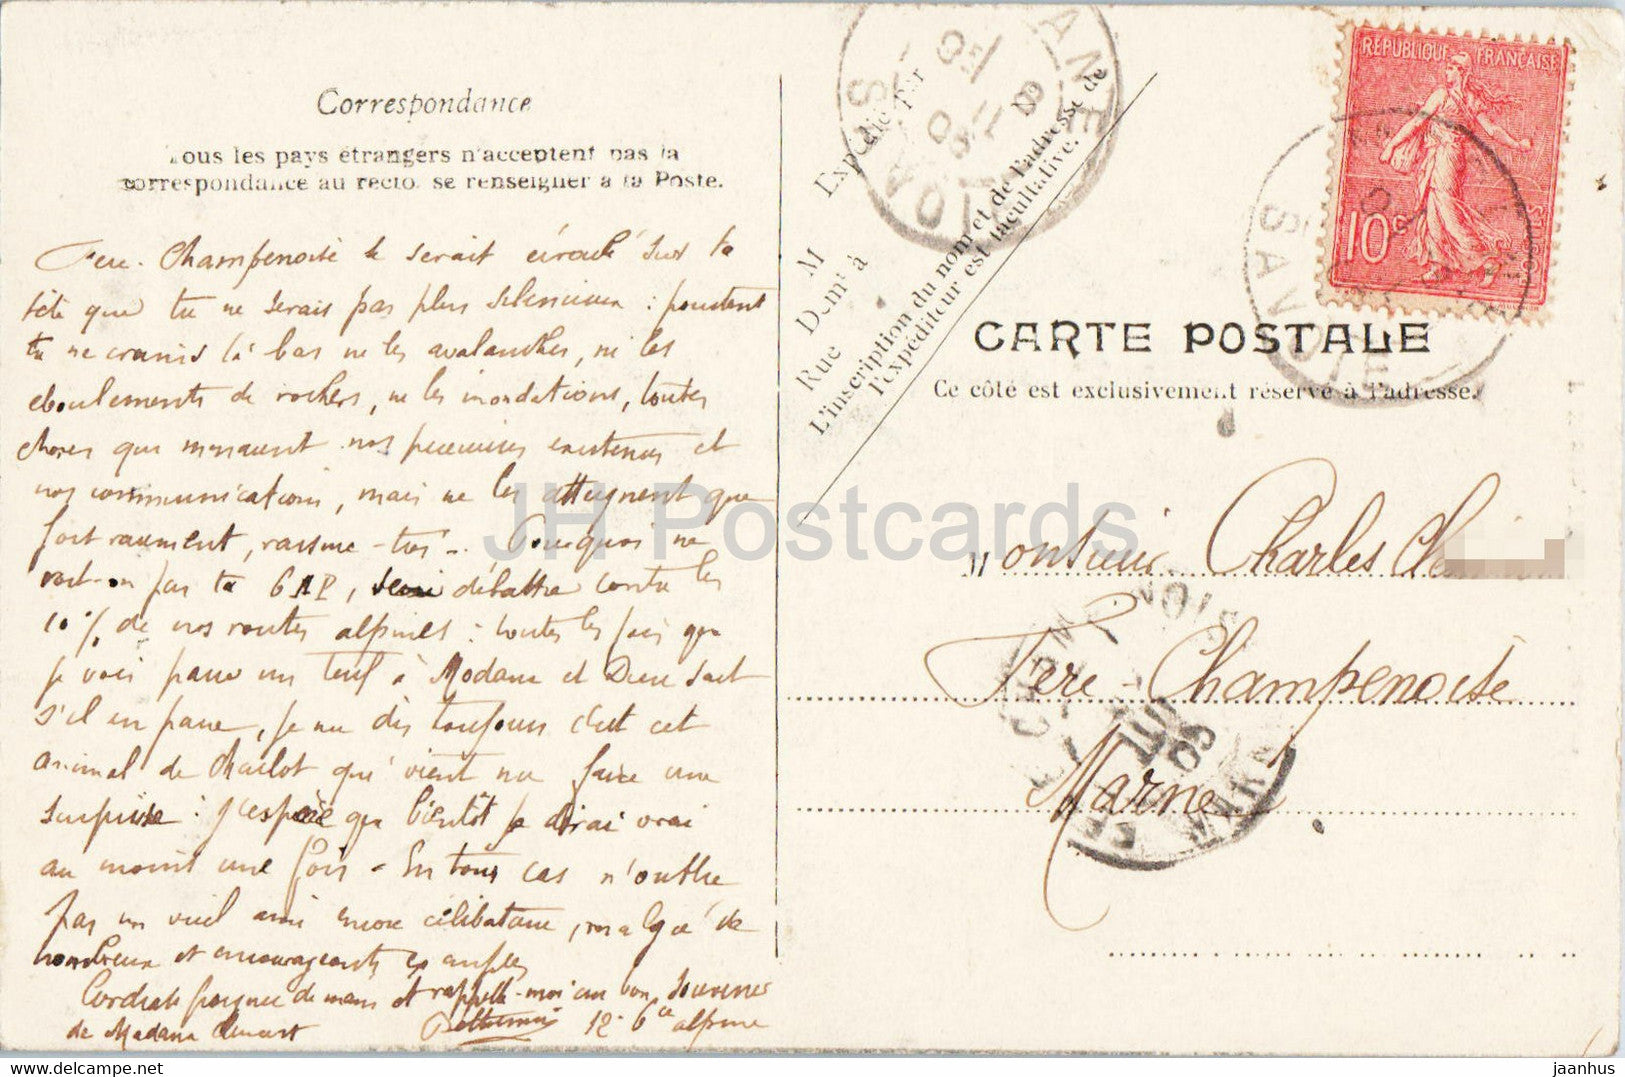 Correspondance
Tous les pays étrangers n'acceptent pas la
correspondance au recto. se renseigner à la Poste.
Fère-Champenoise se serait écroulé sur ta
tête que tu ne serais pas plus silencieux : pourtant
tu ne crains là bas ni les avalanches, ni les
eboulements de rochers, ni les inondations, toutes
choses qui menacent nos précieuses existences et
nos communications, mais ne les atteignent que
fort rarement, rassure-toi... Pourquoi ne
voit-on pas ta 6 HP, débattre contre les
10% de nos routes alpines : toutes les fois que
je vois passer un teuf à Modane et Dieu sait
s'il en passe, je me dis toujours c'est cet
animal de Charlot qui vient me faire une
surprise : j'espère que bientôt je dirai vrai
au moins une fois - En tous cas n'oublie
pas un vieil ami encore célibataire, malgré de
nombreux et encourageants exemples
Cordiale poignée de mains et rappelle-moi au bon souvenir
de Madame 12. 6ce alpine
M
Expédiée Par
Demt à
Rue
L'inscription du nom et de l'adresse de
l'expéditeur est facultative.
REPUBLIQUE FRANÇAISE
10c
POSTES
CARTE POSTALE
Ce côté est exclusivement réservé à l'adresse.
Monsieur Charles
Fère-Champenoise
Marne
MARNE
JH Postcards
jaanhus